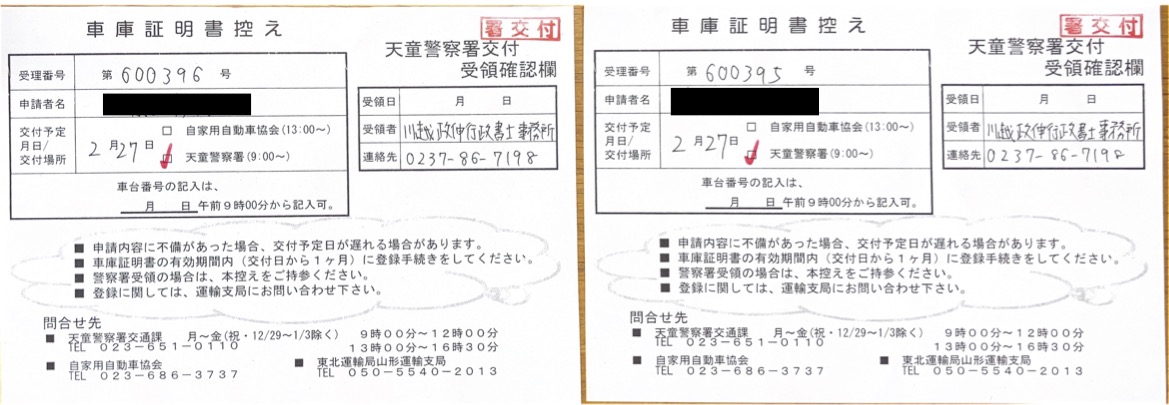 車庫証明書控え
署交付
天童警察署交付
受領確認欄
受理番号 第 600396 号
申請者名
交付予定
月日/
交付場所
2月27日
□ 自家用自動車協会(13:00~)
□ 天童警察署(9:00~)
車台番号の記入は、
月 日 午前9時00分から記入可。
受領日 月 日
受領者 川越政伸行政書士事務所
連絡先 0237-86-7198
■ 申請内容に不備があった場合、交付予定日が遅れる場合があります。
■ 車庫証明書の有効期間内(交付日から1ヶ月)に登録手続きをしてください。
■ 警察署受領の場合は、本控えをご持参ください。
■ 登録に関しては、運輸支局にお問い合わせ下さい。
問合せ先
■ 天童警察署交通課 月~金(祝・12/29~1/3除く) 9時00分~12時00分
TEL 023-651-0110 13時00分~16時30分
■ 自家用自動車協会
TEL 023-686-3737
■ 東北運輸局山形運輸支局
TEL 050-5540-2013
車庫証明書控え
署交付
天童警察署交付
受領確認欄
受理番号 第 600395 号
申請者名
交付予定
月日/
交付場所
2月27日
□ 自家用自動車協会(13:00~)
□ 天童警察署(9:00~)
車台番号の記入は、
月 日 午前9時00分から記入可。
受領日 月 日
受領者 川越政伸行政書士事務所
連絡先 0237-86-7198
■ 申請内容に不備があった場合、交付予定日が遅れる場合があります。
■ 車庫証明書の有効期間内(交付日から1ヶ月)に登録手続きをしてください。
■ 警察署受領の場合は、本控えをご持参ください。
■ 登録に関しては、運輸支局にお問い合わせ下さい。
問合せ先
■ 天童警察署交通課 月~金(祝・12/29~1/3除く) 9時00分~12時00分
TEL 023-651-0110 13時00分~16時30分
■ 自家用自動車協会
TEL 023-686-3737
■ 東北運輸局山形運輸支局
TEL 050-5540-2013